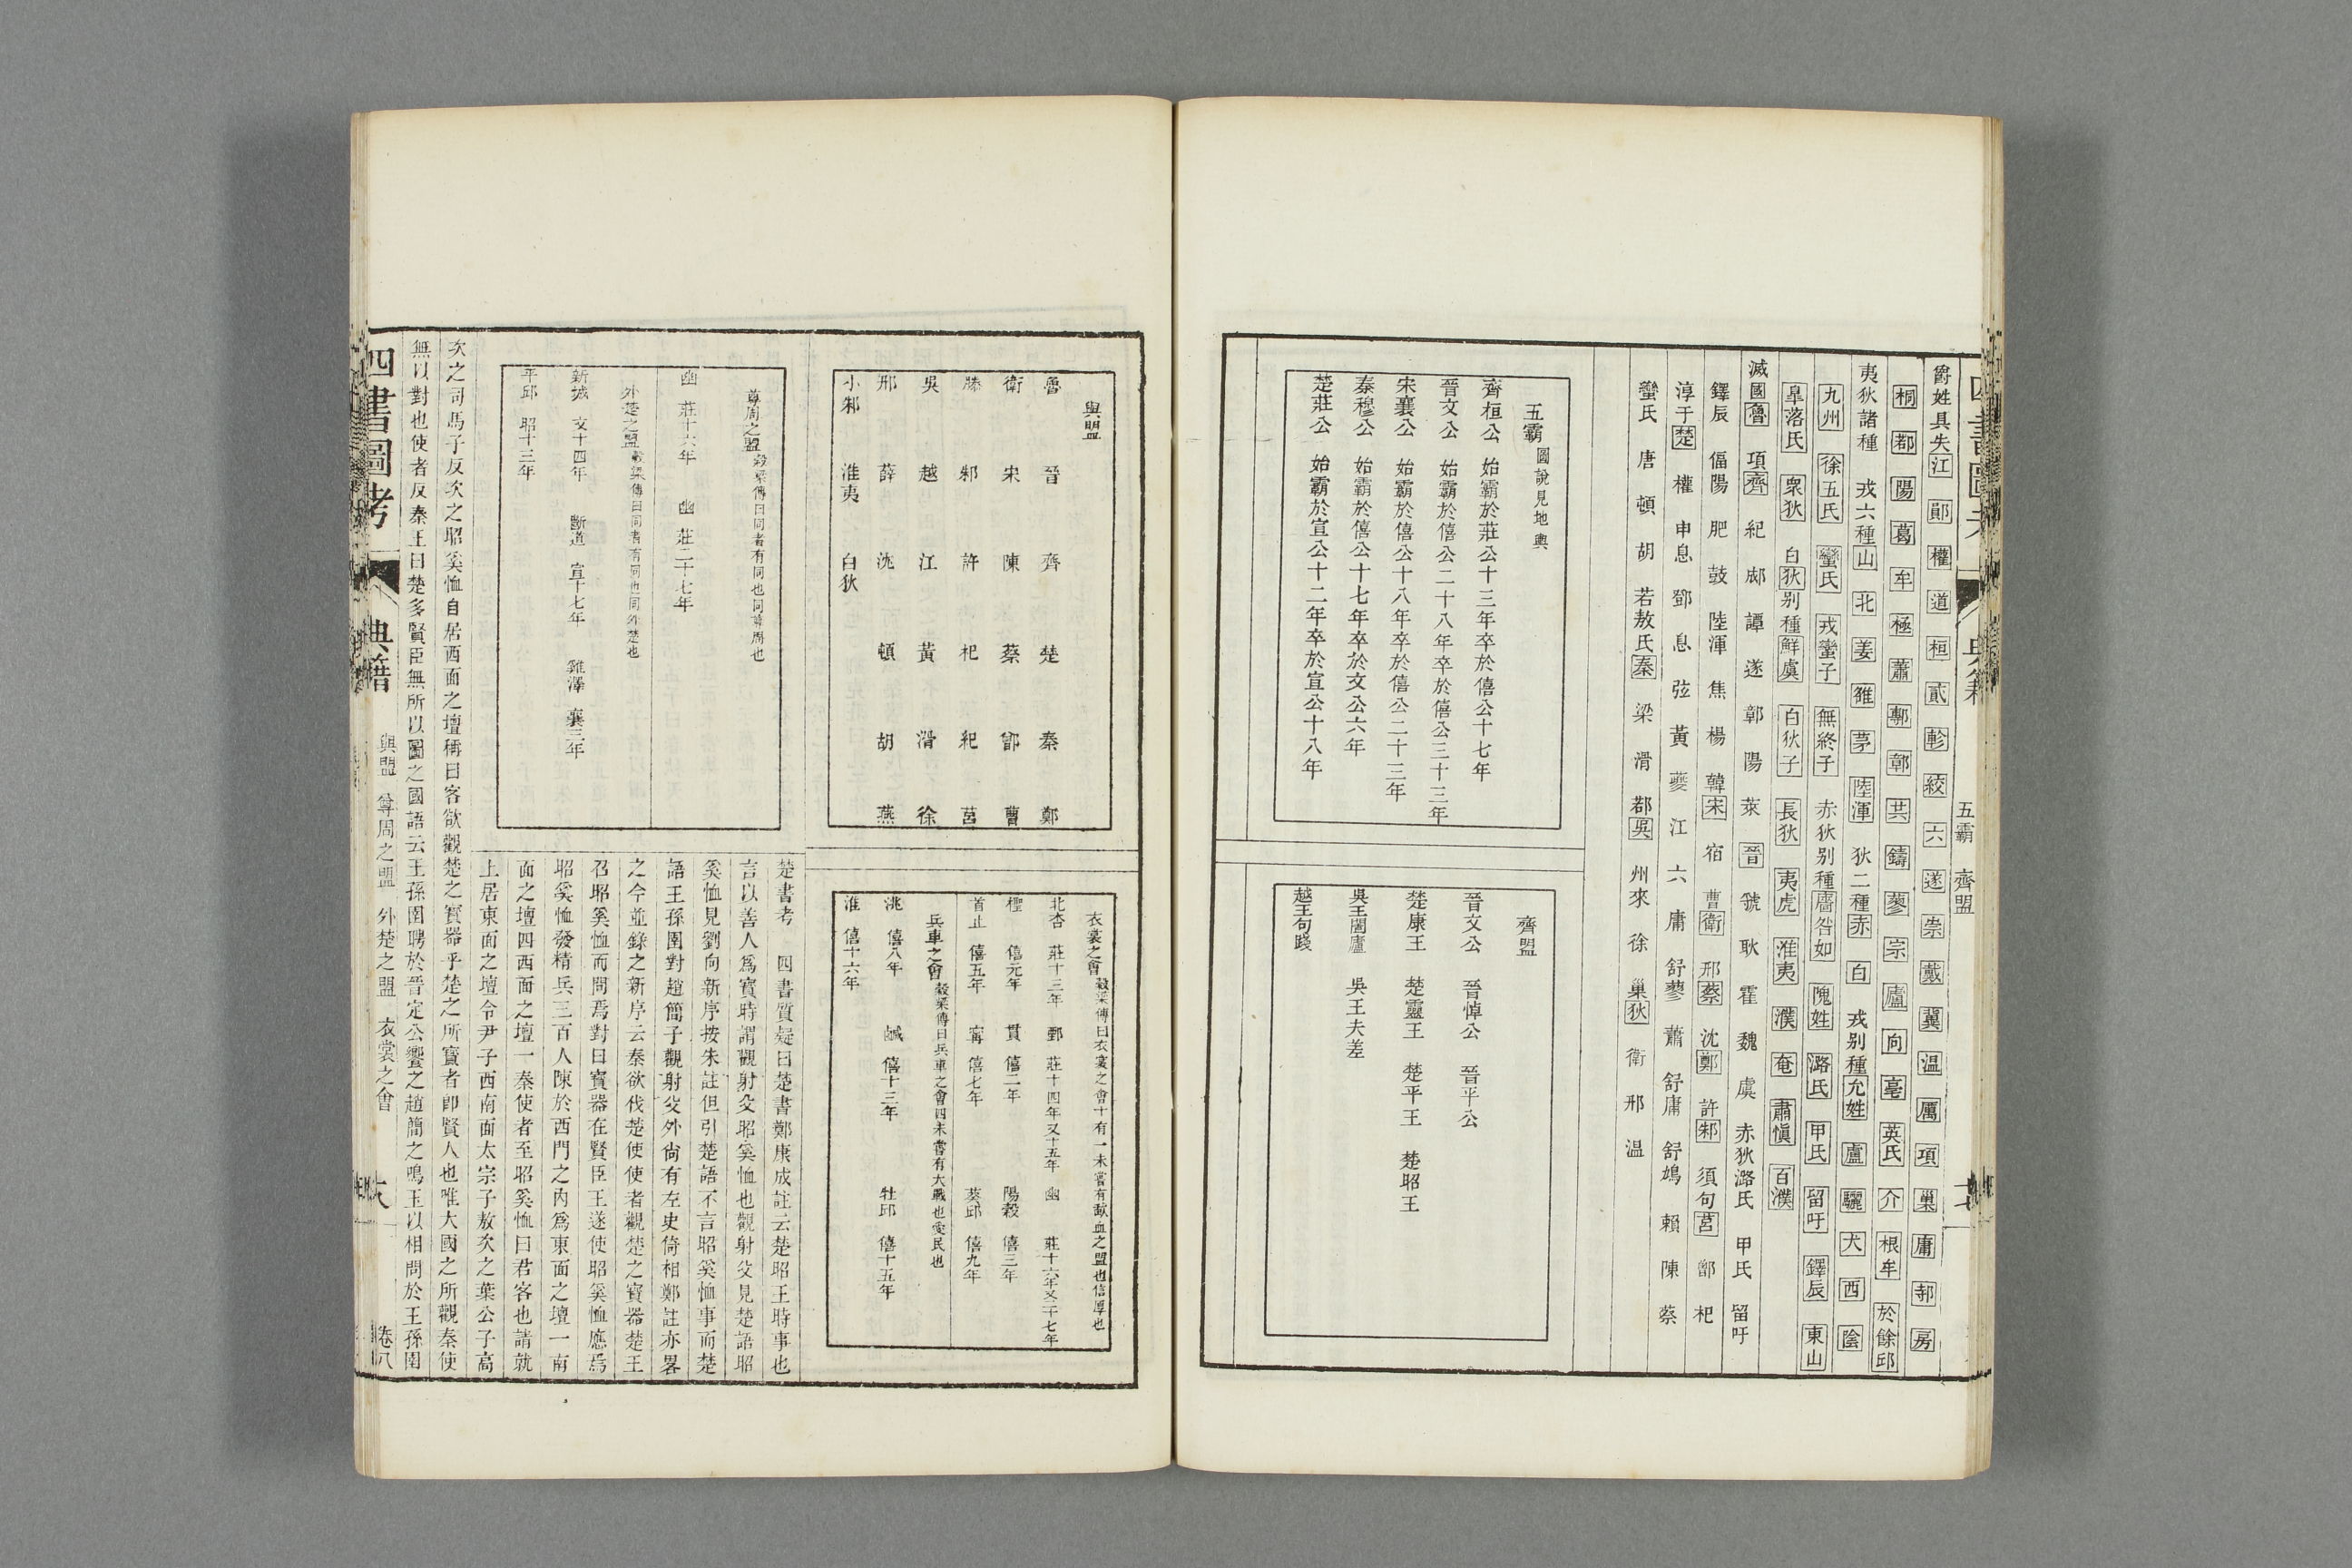 五霸　齊盟
爵姓具失江　鄖　權　道　桓　貳　軫　絞　六　遂　崇　戴　冀　溫　厲　項　巢　庸　郝　房
桐　都　陽　葛　牟　極　蕭　鄟　鄣　共　鑄　蓼　宗　廬　向　亳　英氏　介　根牟　於餘邱
夷狄諸種　戎六種山　北　姜　雒　茅　陸渾　狄二種赤　白　戎別種允姓　盧　驪　犬　西　陰
九州　徐五氏　蠻氏　戎蠻子　無終子　赤狄別種廧咎如　隗姓　潞氏　甲氏　留吁　鐸辰　東山
皐落氏　衆狄　白狄別種鮮虞　白狄子　長狄　夷虎　淮夷　濮　奄　肅愼　百濮
滅國魯　項齊　紀　郕　譚　遂　鄣　陽　萊　晉　虢　耿　霍　魏　虞　赤狄潞氏　甲氏　留吁
鐸辰　偪陽　肥　鼓　陸渾　焦　楊　韓宋　宿　曹衛　邢蔡　沈鄭　許邾　須句莒　鄫　杞
淳于楚　權　申息　鄧　息　弦　黃　夔　江　六　庸　舒蓼　蕭　舒庸　舒鳩　賴　陳　蔡
蠻氏　唐　頓　胡　若敖氏秦　梁　滑　鄀吳　州來　徐　巢狄　衛　邢　溫
五霸　圖說見地輿
齊桓公　始霸於莊公十三年卒於僖公十七年
晉文公　始霸於僖公二十八年卒於僖公三十三年
宋襄公　始霸於僖公十八年卒於僖公二十三年
秦穆公　始霸於僖公十七年卒於文公六年
楚莊公　始霸於宣公十二年卒於宣公十八年
齊盟
晉文公　晉悼公　晉平公
楚康王　楚靈王　楚平王　楚昭王
吳王闔廬　吳王夫差
越王句踐
與盟
魯　晉　齊　楚　秦　鄭
衛　宋　陳　蔡　鄫　曹
滕　邾　許　杞　紀　莒
吳　越　江　黃　滑　徐
邢　薛　沈　頓　胡　燕
小邾　淮夷　白狄
衣裳之會穀梁傳曰衣裳之會十有一未嘗有歃血之盟也信厚也
北杏　莊十三年　鄄　莊十四年又十五年　幽　莊十六年又二十七年
檉　僖元年　貫　僖二年　陽穀　僖三年
首止　僖五年　甯　僖七年　葵邱　僖九年
兵車之會穀梁傳曰兵車之會四未嘗有大戰也愛民也
洮　僖八年　鹹　僖十三年　牡邱　僖十五年
淮　僖十六年
尊周之盟穀梁傳曰同者有同也同尊周也
幽　莊十六年　幽　莊二十七年
外楚之盟穀梁傳曰同者有同也同外楚也
新城　文十四年　斷道　宣十七年　雞澤　襄三年
平邱　昭十三年
楚書考　四書質疑曰楚書鄭康成註云楚昭王時事也
言以善人爲寶時謂觀射父昭奚恤也觀射父見楚語昭
奚恤見劉向新序按朱註但引楚語不言昭奚恤事而楚
語王孫圉對趙簡子觀射父外尙有左史倚相鄭註亦畧
之今並錄之新序云秦欲伐楚使使者觀楚之寶器楚王
召昭奚恤而問焉對曰寶器在賢臣王遂使昭奚恤應焉
昭奚恤發精兵三百人陳於西門之內爲東面之壇一南
面之壇四西面之壇一秦使者至昭奚恤曰君客也請就
上居東面之壇令尹子西南面太宗子敖次之葉公子高
次之司馬子反次之昭奚恤自居西面之壇稱曰客欲觀楚之寶器乎楚之所寶者卽賢人也唯大國之所觀秦使
無以對也使者反秦王曰楚多賢臣無所以圖之國語云王孫圉聘於晉定公饗之趙簡之鳴玉以相問於王孫圉
四書圖考　典籍　與盟　尊周之盟　外楚之盟　衣裳之會　卷八